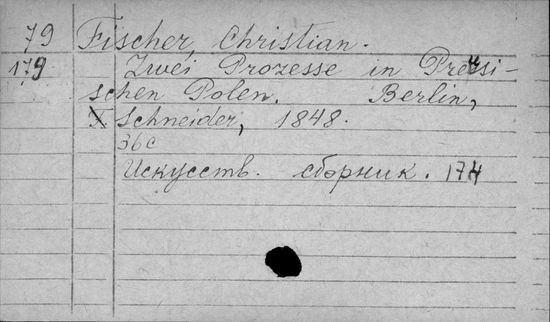 79 Fischer, Christian.
179 Zwei Prozesse in Preusi-
schen Polen. Berlin,
Schneider, 1848.
36 c
Искусств. сборник. 174